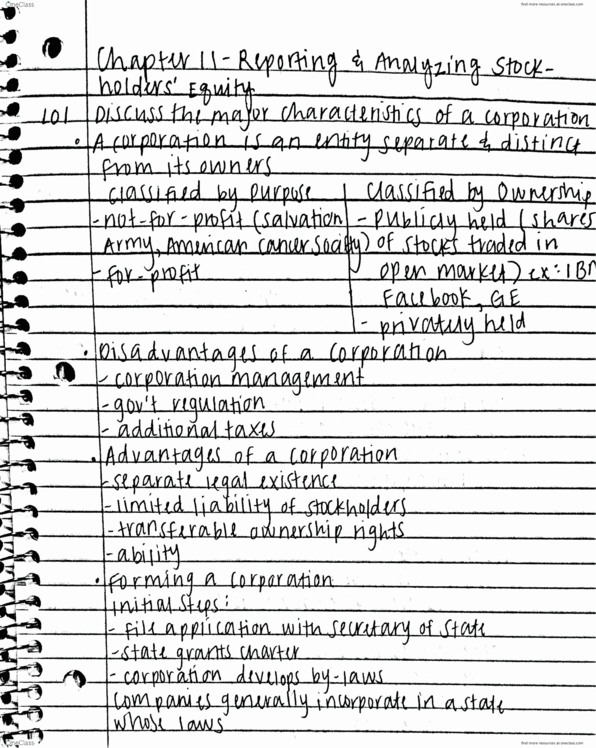 OneClass
find more resources at oneclass.com
Chapter 11 - Reporting & Analyzing Stock-
holders' Equity
LO1 Discuss the major characteristics of a corporation
• A corporation is an entity separate & distinct
from its owners
classified by purpose | Classified by Ownership
- not-for-profit (salvation | - Publicly held (shares
Army, American cancer Society) | of stocks traded in
- for-profit | open market) ex: IBM
Facebook, GE
- privately held
• Disadvantages of a corporation
- corporation management
- gov't regulation
- additional taxes
• Advantages of a corporation
- separate legal existence
- limited liability of stockholders
- transferable ownership rights
- ability
• Forming a corporation
initial steps:
- file application with secretary of state
- state grants charter
- corporation develops by-laws
Companies generally incorporate in a state
whose laws
OneClass
find more resources at oneclass.com